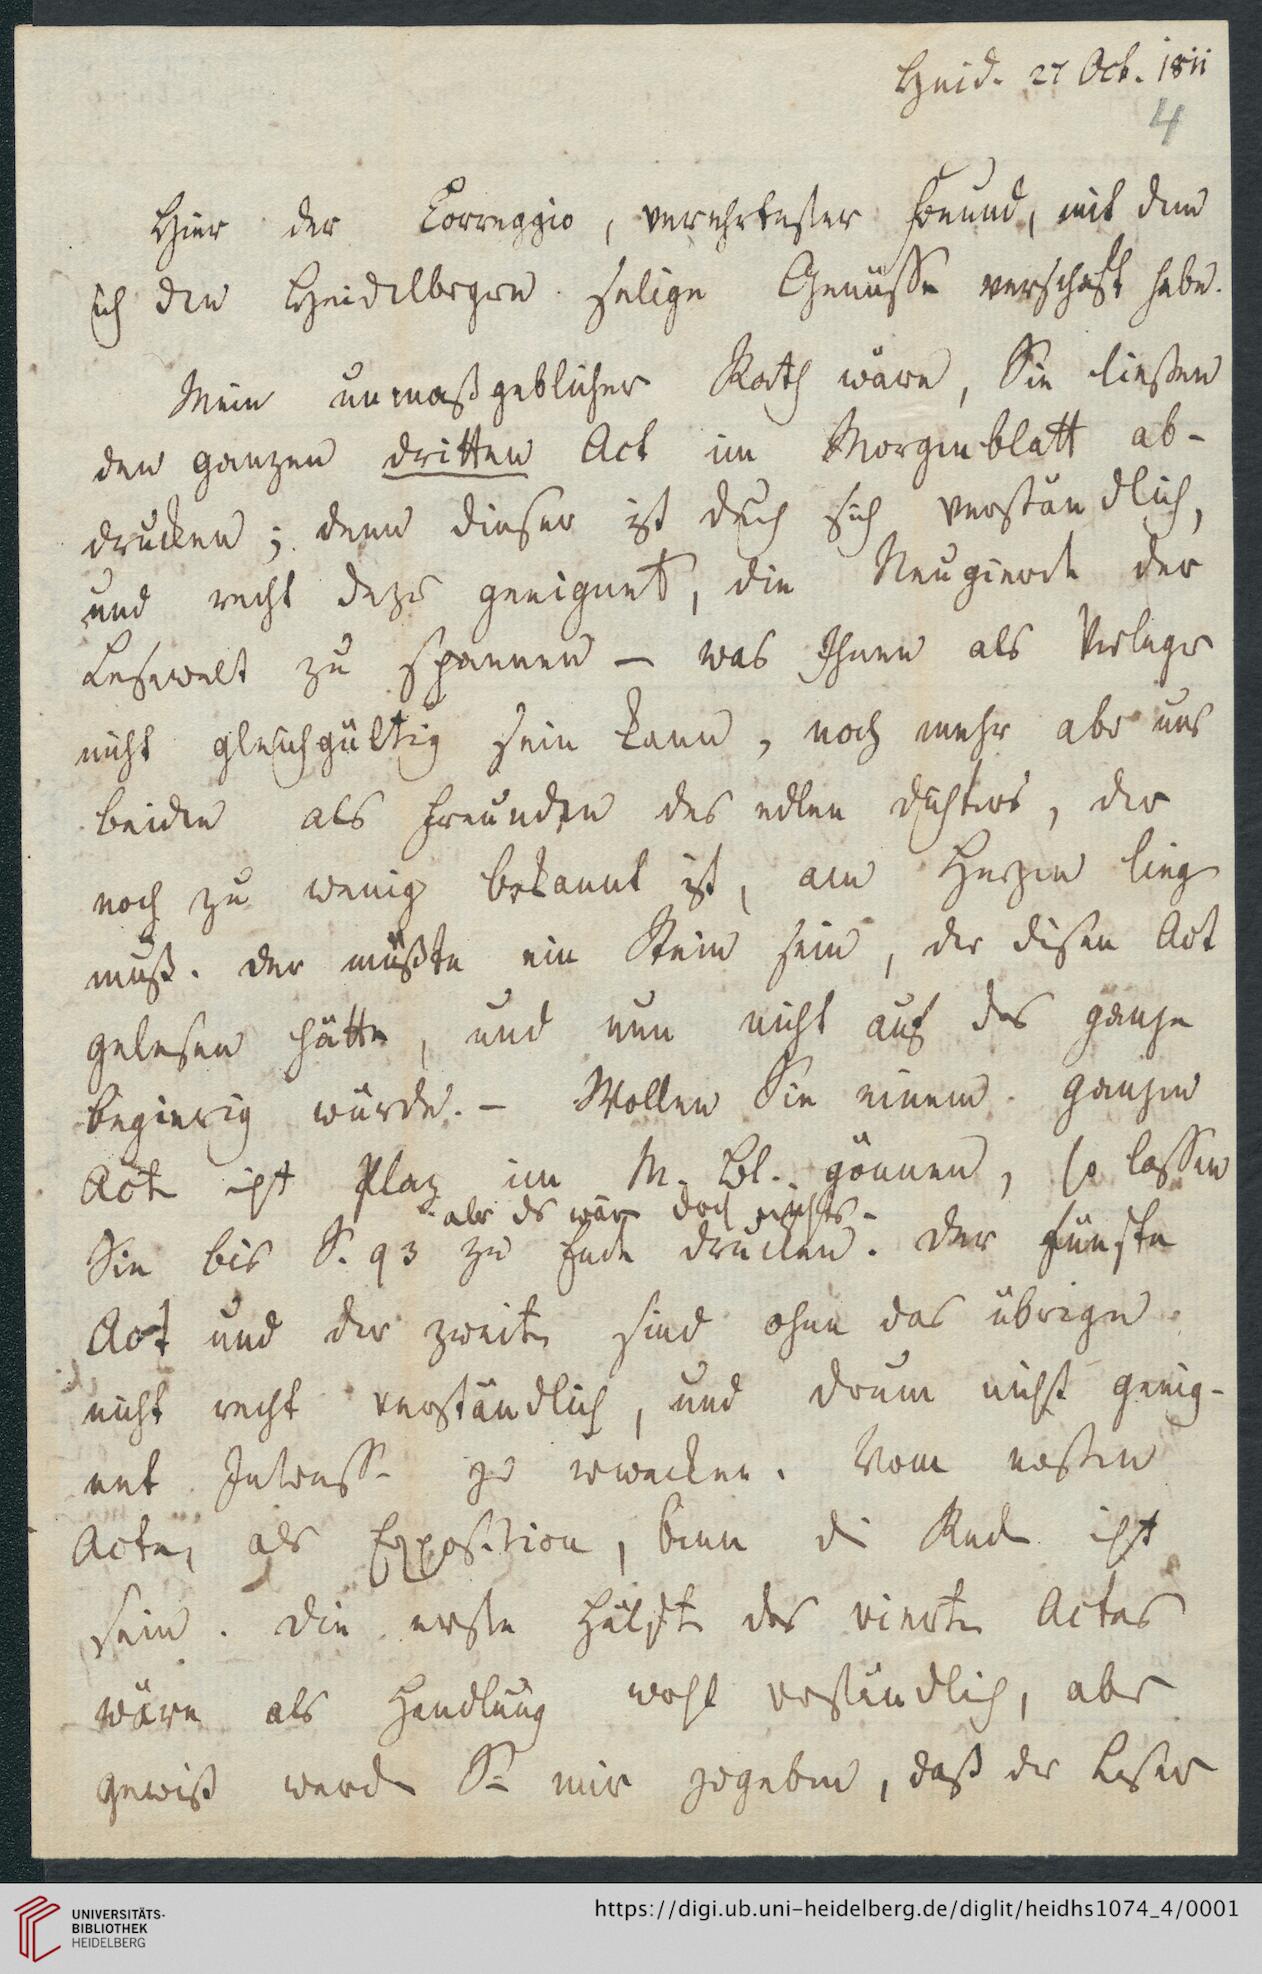 Heid. 27 Oct. 1811
4
Hier der Correggio, verehrtester Freund, mit dem
ich den Heidelbergern selige Genüsse verschaft habe.
Mein unmaßgeblicher Rath wäre, Sie ließen
den ganzen dritten Act im Morgenblatt ab-
drucken; denn dieser ist durch sich verständlich,
und recht dazu geeignet, die Neugierde der
Lesewelt zu spannen – was Ihnen als Verleger
nicht gleichgültig sein kann, noch mehr aber uns
beiden als Freunden des edlen Dichters, der
noch zu wenig bekannt ist, am Herzen liegen
muß. Der müßte ein Stein sein, der diesen Act
gelesen hätte, und nun nicht auf das ganze
begierig würde. – Wollen Sie einem ganzen
Act nicht Plaz im M. Bl. gönnen, so lassen
aber das wär doch nichts –
Sie bis S. 93 zu Ende drucken. Der fünfte
Act und der zweite sind ohne das übrige
nicht recht verständlich, und drum nicht geeig-
net Interesse zu erwecken. Vom ersten
Acte, als Exposition, kann die Rede nicht
sein. Die erste Hälfte des vierten Actes
wäre als Handlung wohl verständlich, aber
gewiß werden Sie mir zugeben, daß der Leser
UNIVERSITÄTS-
BIBLIOTHEK
HEIDELBERG
https://digi.ub.uni-heidelberg.de/diglit/heidhs1074_4/0001